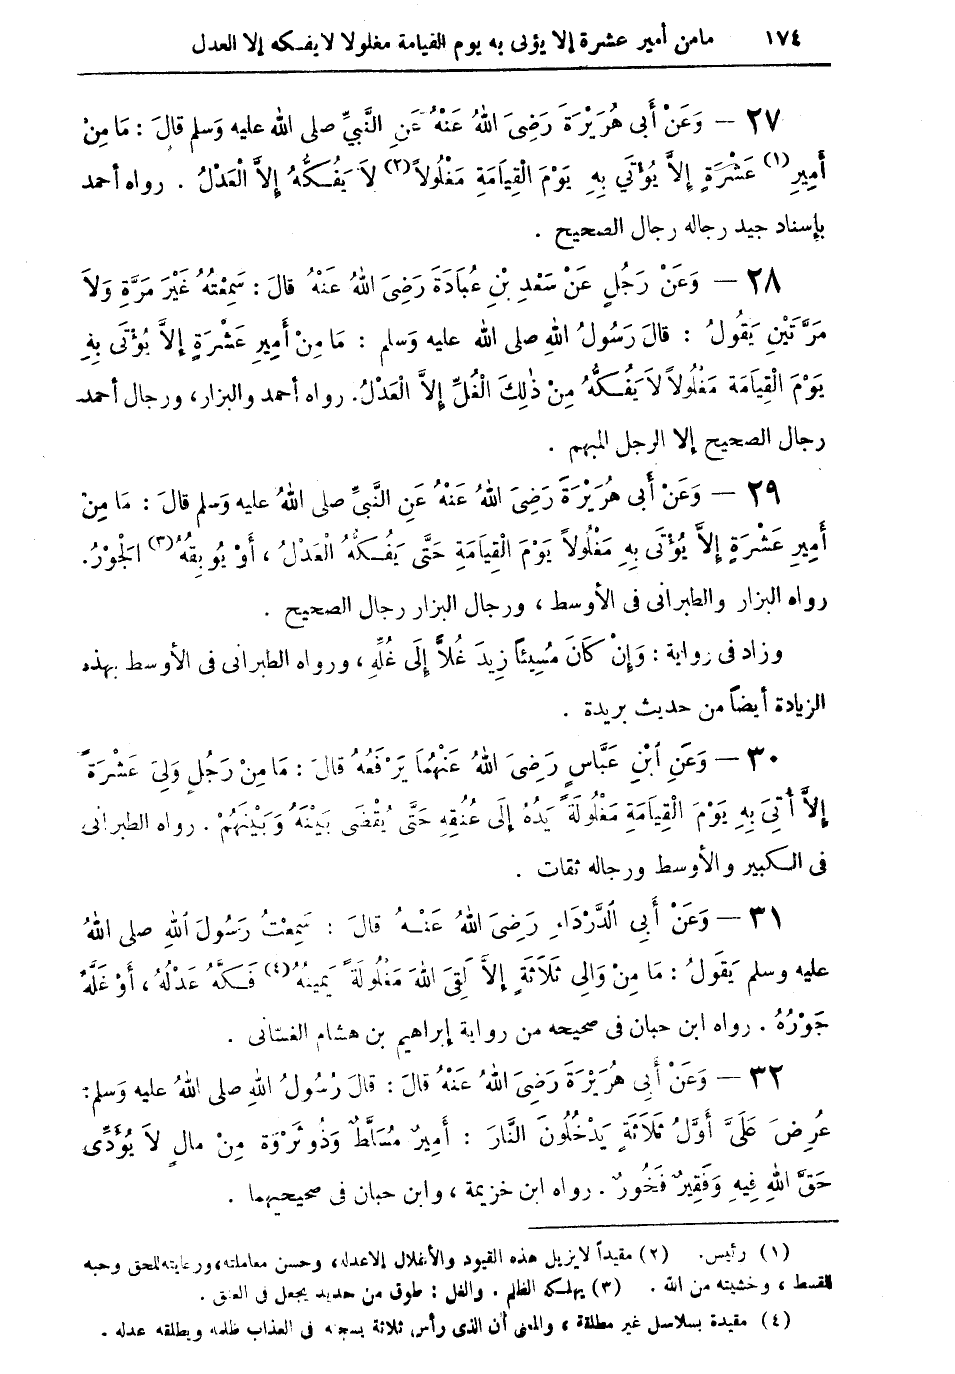 ١٧٤ مامن أمير عشرة إلا يؤتى به يوم القيامة مغلولا لايفكه إلا العدل
٢٧ — وَعَنْ أَبى هُرَيْرَةَ رَضِىَ اللهُ عَنْهُ عَنِ النَّبِىِّ صلى الله عليه وَسلم قالَ : مَا مِنْ
أَمِيرِ (١) عَشْرَةٍ إِلاَّ يُؤْتَي بِهِ يَوْمَ الْقِيَامَةِ مَغْلُولاً (٢) لاَ يَفُكُّهُ إِلاَّ الْعَدْلُ . رواه أحمد
بإسناد جيد رجاله رجال الصحيح .
٢٨ — وَعَنْ رَجُلٍ عَنْ سَعْدِ بْنِ عُبَادَةَ رَضِىَ اللهُ عَنْهُ قالَ : سَمِعْتُهُ غَيْرَ مَرَّةٍ وَلاَ
مَرَّتَيْنِ يَقُولُ : قالَ رَسُولُ اللهِ صلى الله عليه وَسلم : مَا مِنْ أَمِيرِ عَشْرَةٍ إِلاَّ يُؤْتَى بِهِ
يَوْمَ الْقِيَامَةِ مَغْلُولاً لاَ يَفُكُّهُ مِنْ ذٰلِكَ الْغُلِّ إِلاَّ الْعَدْلُ. رواه أحمد والبزار، ورجال أحمد
رجال الصحيح إلا الرجل المبهم .
٢٩ — وَعَنْ أَبى هُرَيْرَةَ رَضِىَ اللهُ عَنْهُ عَنِ النَّبىِّ صلى اللهُ عليه وَسلم قالَ : مَا مِنْ
أَمِيرِ عَشْرَةٍ إِلاَّ يُؤْتَى بِهِ مَغْلُولاً يَوْمَ الْقِيَامَةِ حَتَّى يَفُكَّهُ الْعَدْلُ ، أَوْ يُوبِقُهُ (٣) الجَوْرُ.
رواه البزار والطبرانى فى الأوسط ، ورجال البزار رجال الصحيح .
وزاد فى رواية : وَإِنْ كَانَ مُسِيئاً زِيدَ غُلاًّ إِلَى غُلِّهِ ، ورواه الطبرانى فى الأوسط بهذه
الزيادة أيضاً من حديث بريدة .
٣٠ — وَعَنِ ابْنِ عَبَّاسٍ رَضِىَ اللهُ عَنْهُمَا يَرْفَعُهُ قالَ : مَا مِنْ رَجُلٍ وَلِىَ عَشْرَةً
إِلاَّ أُتِىَ بِهِ يَوْمَ الْقِيَامَةِ مَغْلُولَةً يَدُهُ إِلَى عُنُقِهِ حَتَّى يُقْضَى بَيْنَهُ وَبَيْنَهُمْ . رواه الطبرانى
فى الكبير والأوسط ورجاله ثقات .
٣١ — وَعَنْ أَبِي الدَّرْدَاءِ رَضِىَ اللهُ عَنْهُ قالَ : سَمِعْتُ رَسُولَ اللهِ صلى اللهُ
عليه وسلم يَقُولُ : مَا مِنْ وَالِى ثَلاَثَةٍ إِلاَّ لَقِىَ اللهَ مَغْلُولَةً يَمِينُهُ (٤) فَكَّهُ عَدْلُهُ ، أَوْ غَلَّهُ
جَوْرُهُ . رواه ابن حبان فى صحيحه من رواية إبراهيم بن هشام الغسّانى .
٣٢ — وَعَنْ أَبِي هُرَيْرَةَ رَضِىَ اللهُ عَنْهُ قالَ : قالَ رَسُولُ اللهِ صلى اللهُ عليه وَسلم:
عُرِضَ عَلَىَّ أَوَّلُ ثَلاَثَةٍ يَدْخُلُونَ النَّارَ : أَمِيرٌ مُسَلَّطٌ وَذُو ثَرْوَةٍ مِنْ مالٍ لاَ يُؤَدِّى
حَقَّ اللهِ فِيهِ وَفَقِيرٌ فَخُورٌ . رواه ابن خزيمة ، وابن حبان فى صحيحيهما .
(١) رئيس. (٢) مقيداً لايزيل هذه القيود والأغلال إلاعدله، وحسن معاملته، ورعايته للحق وحبه
القسط ، وخشيته من الله . (٣) يهلكه الظلم . والغل : طوق من حديد يجعل فى العنق .
(٤) مقيدة بسلاسل غير مطلقة ، والمعنى أن الذى رأس ثلاثة يسجنه فى العذاب ظلمه ويطلقه عدله .